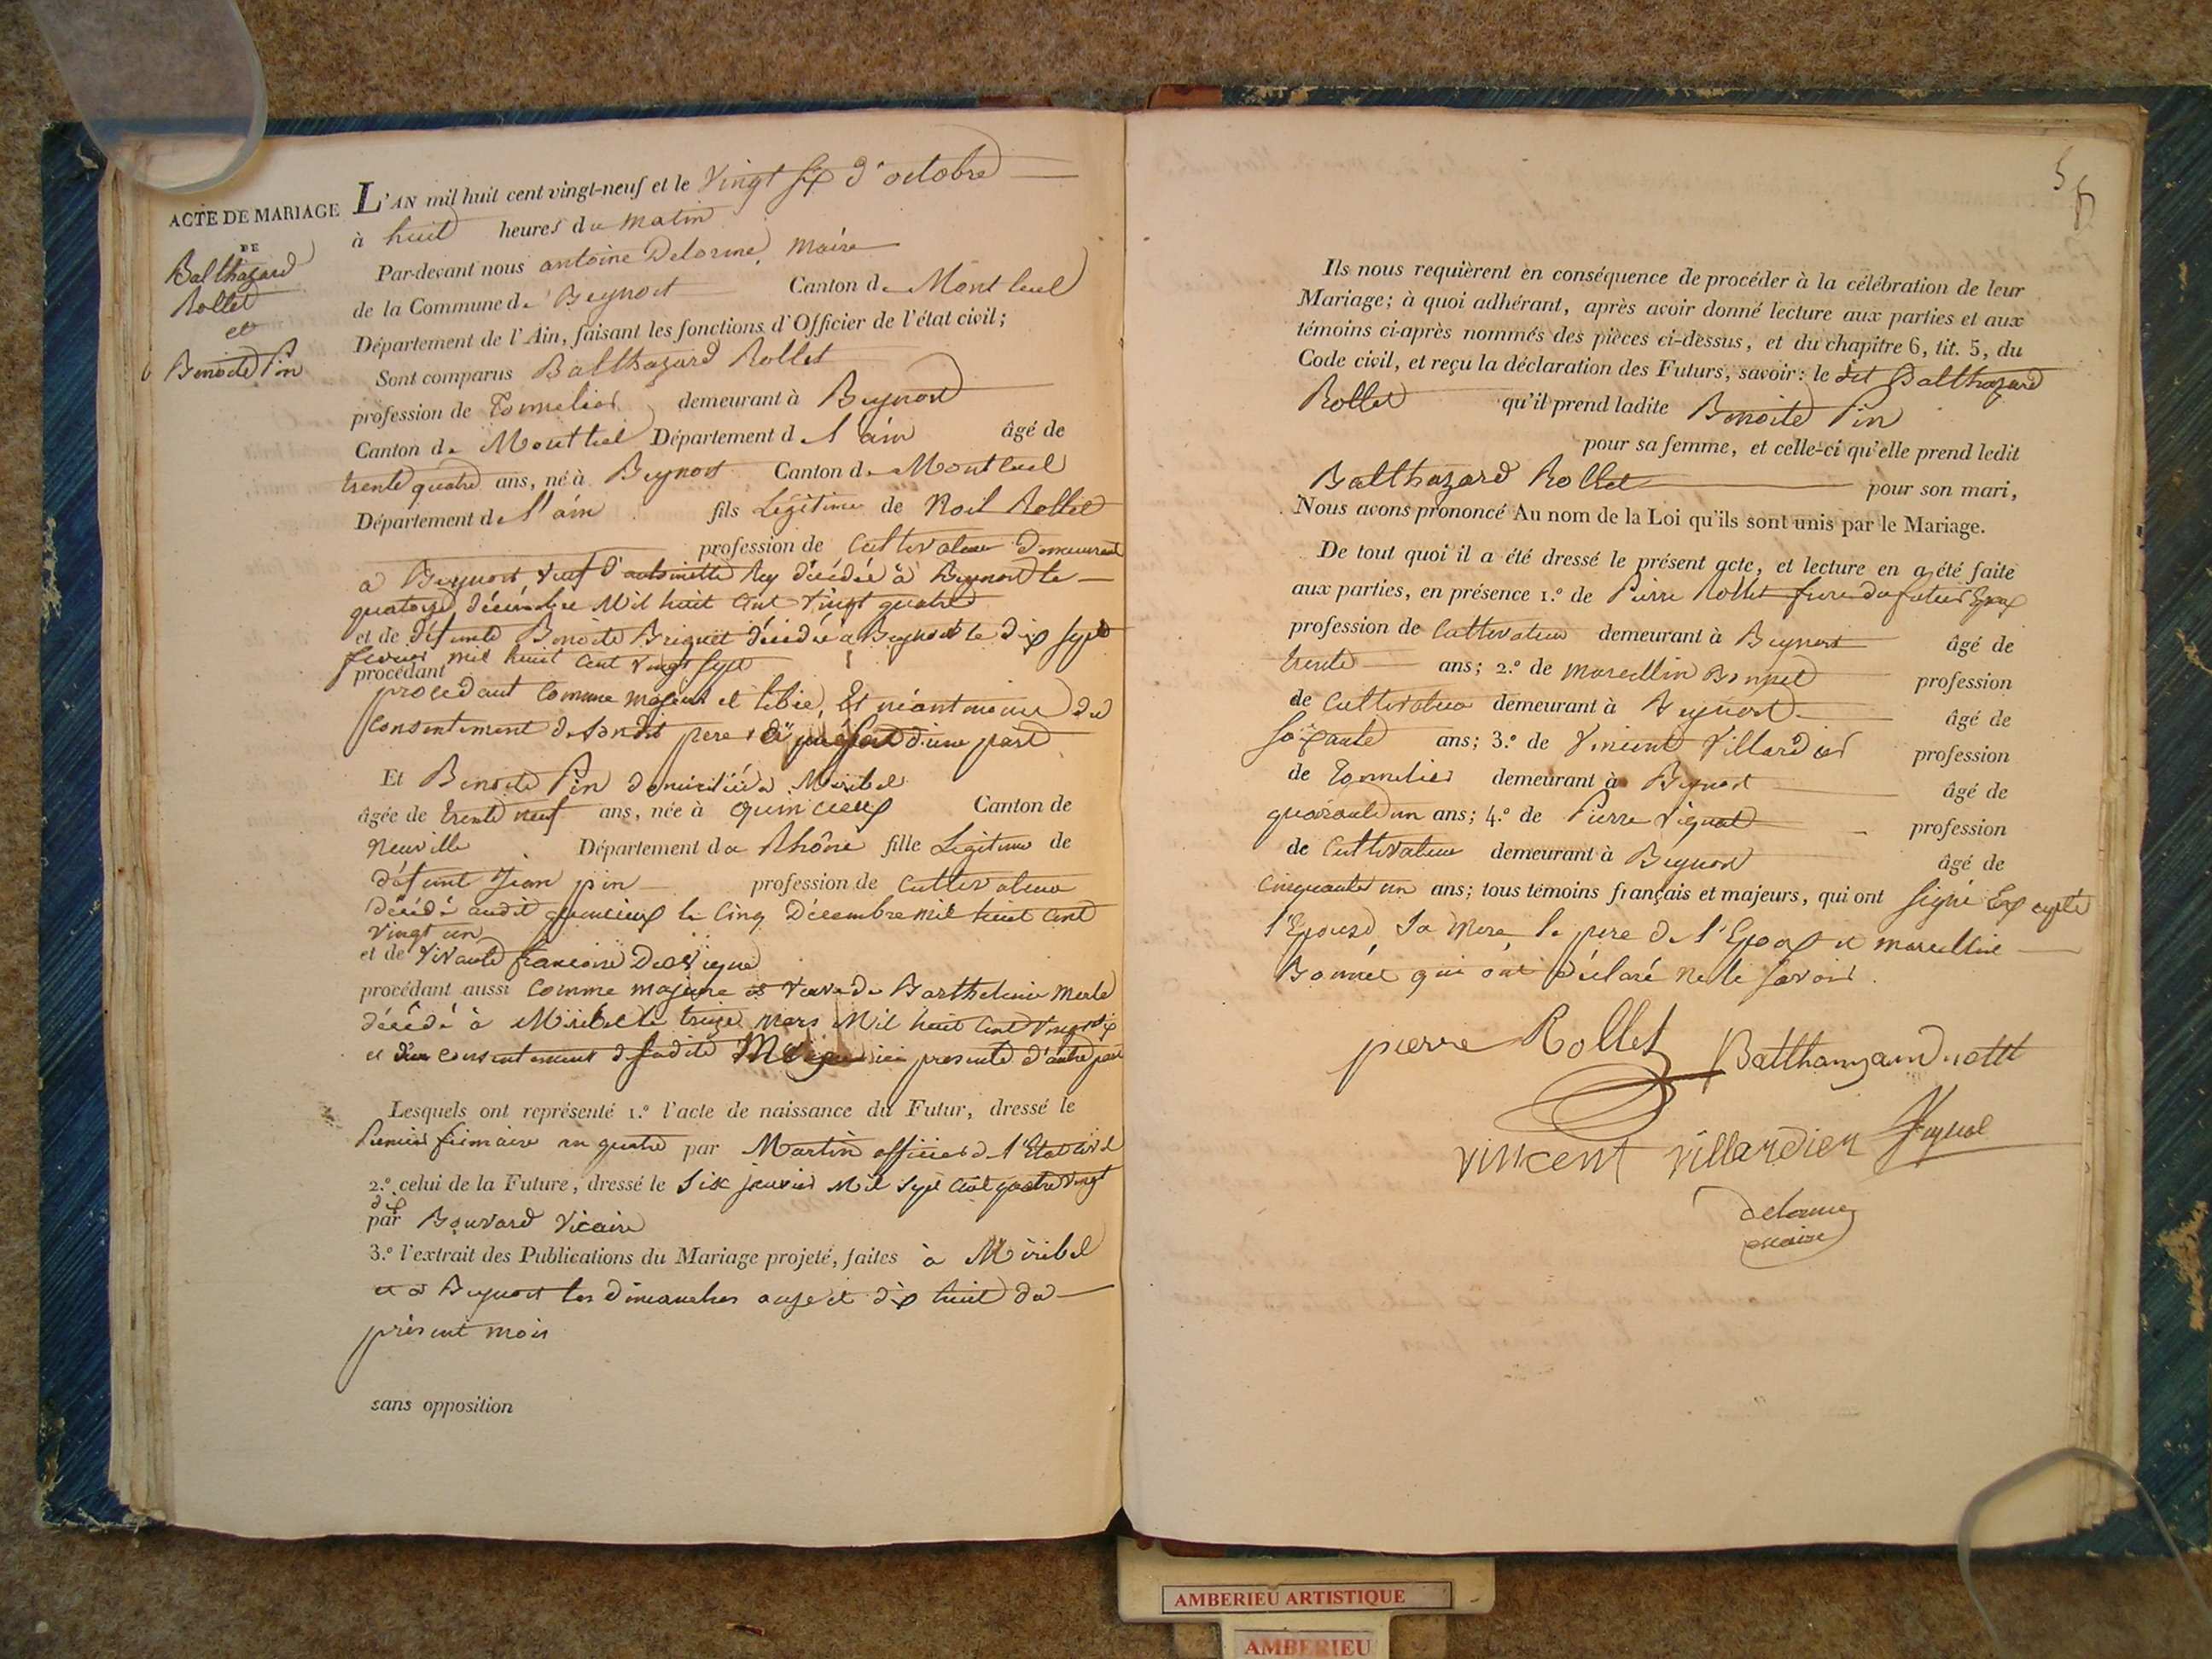 ACTE DE MARIAGE
DE
Balthazard
Rollet
et
Benoite Pin
L'AN mil huit cent vingt-neuf et le Vingt six d'octobre
à huit heures du matin
Par-devant nous antoine Delorme, Maire
de la Commune de Beynost Canton de Montluel
Département de l'Ain, faisant les fonctions d'Officier de l'état civil;
Sont comparus Balthazard Rollet
profession de Tonnelier demeurant à Beynost
Canton de Montluel Département de l'ain âgé de
trente quatre ans, né à Beynost Canton de Montluel
Département de l'ain fils Légitime de Noel Rollet
profession de Cultivateur demeurant
a Beynost, veuf d'antoinette Rey décédée à Beynost le
quatorze décembre Mil huit Cent Vingt quatre
et de défunte Benoite Briguet décédée a Beynost le dix sept
fevrier mil huit Cent Vingt sept
procédant
procedant Comme majeur et libre, Et néantmoins du
Consentement de sondit pere d'une part
Et Benoite Pin domiciliée à Miribel
âgée de trente neuf ans, née à quincieux Canton de
Neuville Département du Rhône fille Légitime de
défunt Jean pin profession de Cultivateur
décédé audit quincieux le Cinq Décembre mil huit Cent
Vingt un
et de Vivante francoise Desvigne
procédant aussi Comme majeure et Veuve de Barthelemie Merle
décédé à Miribel le treize Mars Mil huit Cent Vingt six
et du consentement de sadite Mere ici presente d'autre part
Lesquels ont représenté 1.º l'acte de naissance du Futur, dressé le
Premier frimaire an quatre par Martin officier de l'Etat Civil
2.º celui de la Future, dressé le Six janvier Mil Sept Cent quatre Vingt
dix
par Bouvard Vicaire
3.º l'extrait des Publications du Mariage projeté, faites à Miribel
et à Beynost les dimanches onze et dix huit du
présent mois
sans opposition
Ils nous requièrent en conséquence de procéder à la célébration de leur
Mariage; à quoi adhérant, après avoir donné lecture aux parties et aux
témoins ci-après nommés des pièces ci-dessus, et du chapitre 6, tit. 5, du
Code civil, et reçu la déclaration des Futurs, savoir: le dit Balthazard
Rollet qu'il prend ladite Benoite Pin
pour sa femme, et celle-ci qu'elle prend ledit
Balthazard Rollet pour son mari,
Nous avons prononcé Au nom de la Loi qu'ils sont unis par le Mariage.
De tout quoi il a été dressé le présent acte, et lecture en a été faite
aux parties, en présence 1.º de Pierre Rollet frere du futur Epoux
profession de Cultivateur demeurant à Beynost âgé de
trente ans; 2.º de Marcellin Bonnet profession
de Cultivateur demeurant à Beynost âgé de
soixante ans; 3.º de Vincent Villardier profession
de Tonnelier demeurant à Beynost âgé de
quarante un ans; 4.º de Pierre Vignat profession
de Cultivateur demeurant à Beynost âgé de
Cinquante un ans; tous témoins français et majeurs, qui ont signé Excepté
l'Epouse, Sa Mere, le pere de l'Epoux et marcellin
Bonnet qui ont déclaré ne le savoir.
pierre Rollet
vincent villardier
delorme
maire
AMBERIEU ARTISTIQUE
AMBERIEU